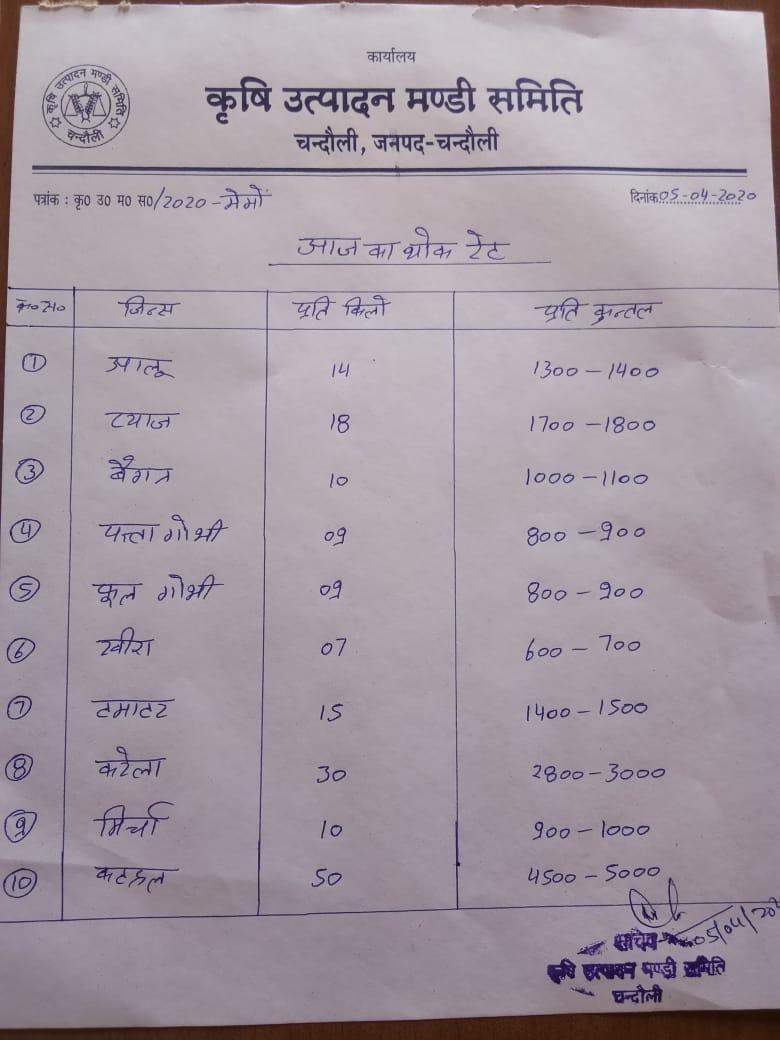 कार्यालय
कृषि उत्पादन मण्डी समिति
चन्दौली, जनपद-चन्दौली
कृषि उत्पादन मण्डी समिति
चन्दौली
पत्रांक : कृ० उ० म० स०/2020-मेमों दिनांक 05-04-2020
आज का थोक रेट
क्र०सं० जिन्स प्रति किलो प्रति कुन्तल
1 आलू 14 1300-1400
2 प्याज 18 1700-1800
3 बैगन 10 1000-1100
4 पत्ता गोभी 09 800-900
5 फूल गोभी 09 800-900
6 खीरा 07 600-700
7 टमाटर 15 1400-1500
8 करेला 30 2800-3000
9 मिर्चा 10 900-1000
10 कटहल 50 4500-5000
05/04/20
सचिव
कृषि उत्पादन मण्डी समिति
चन्दौली